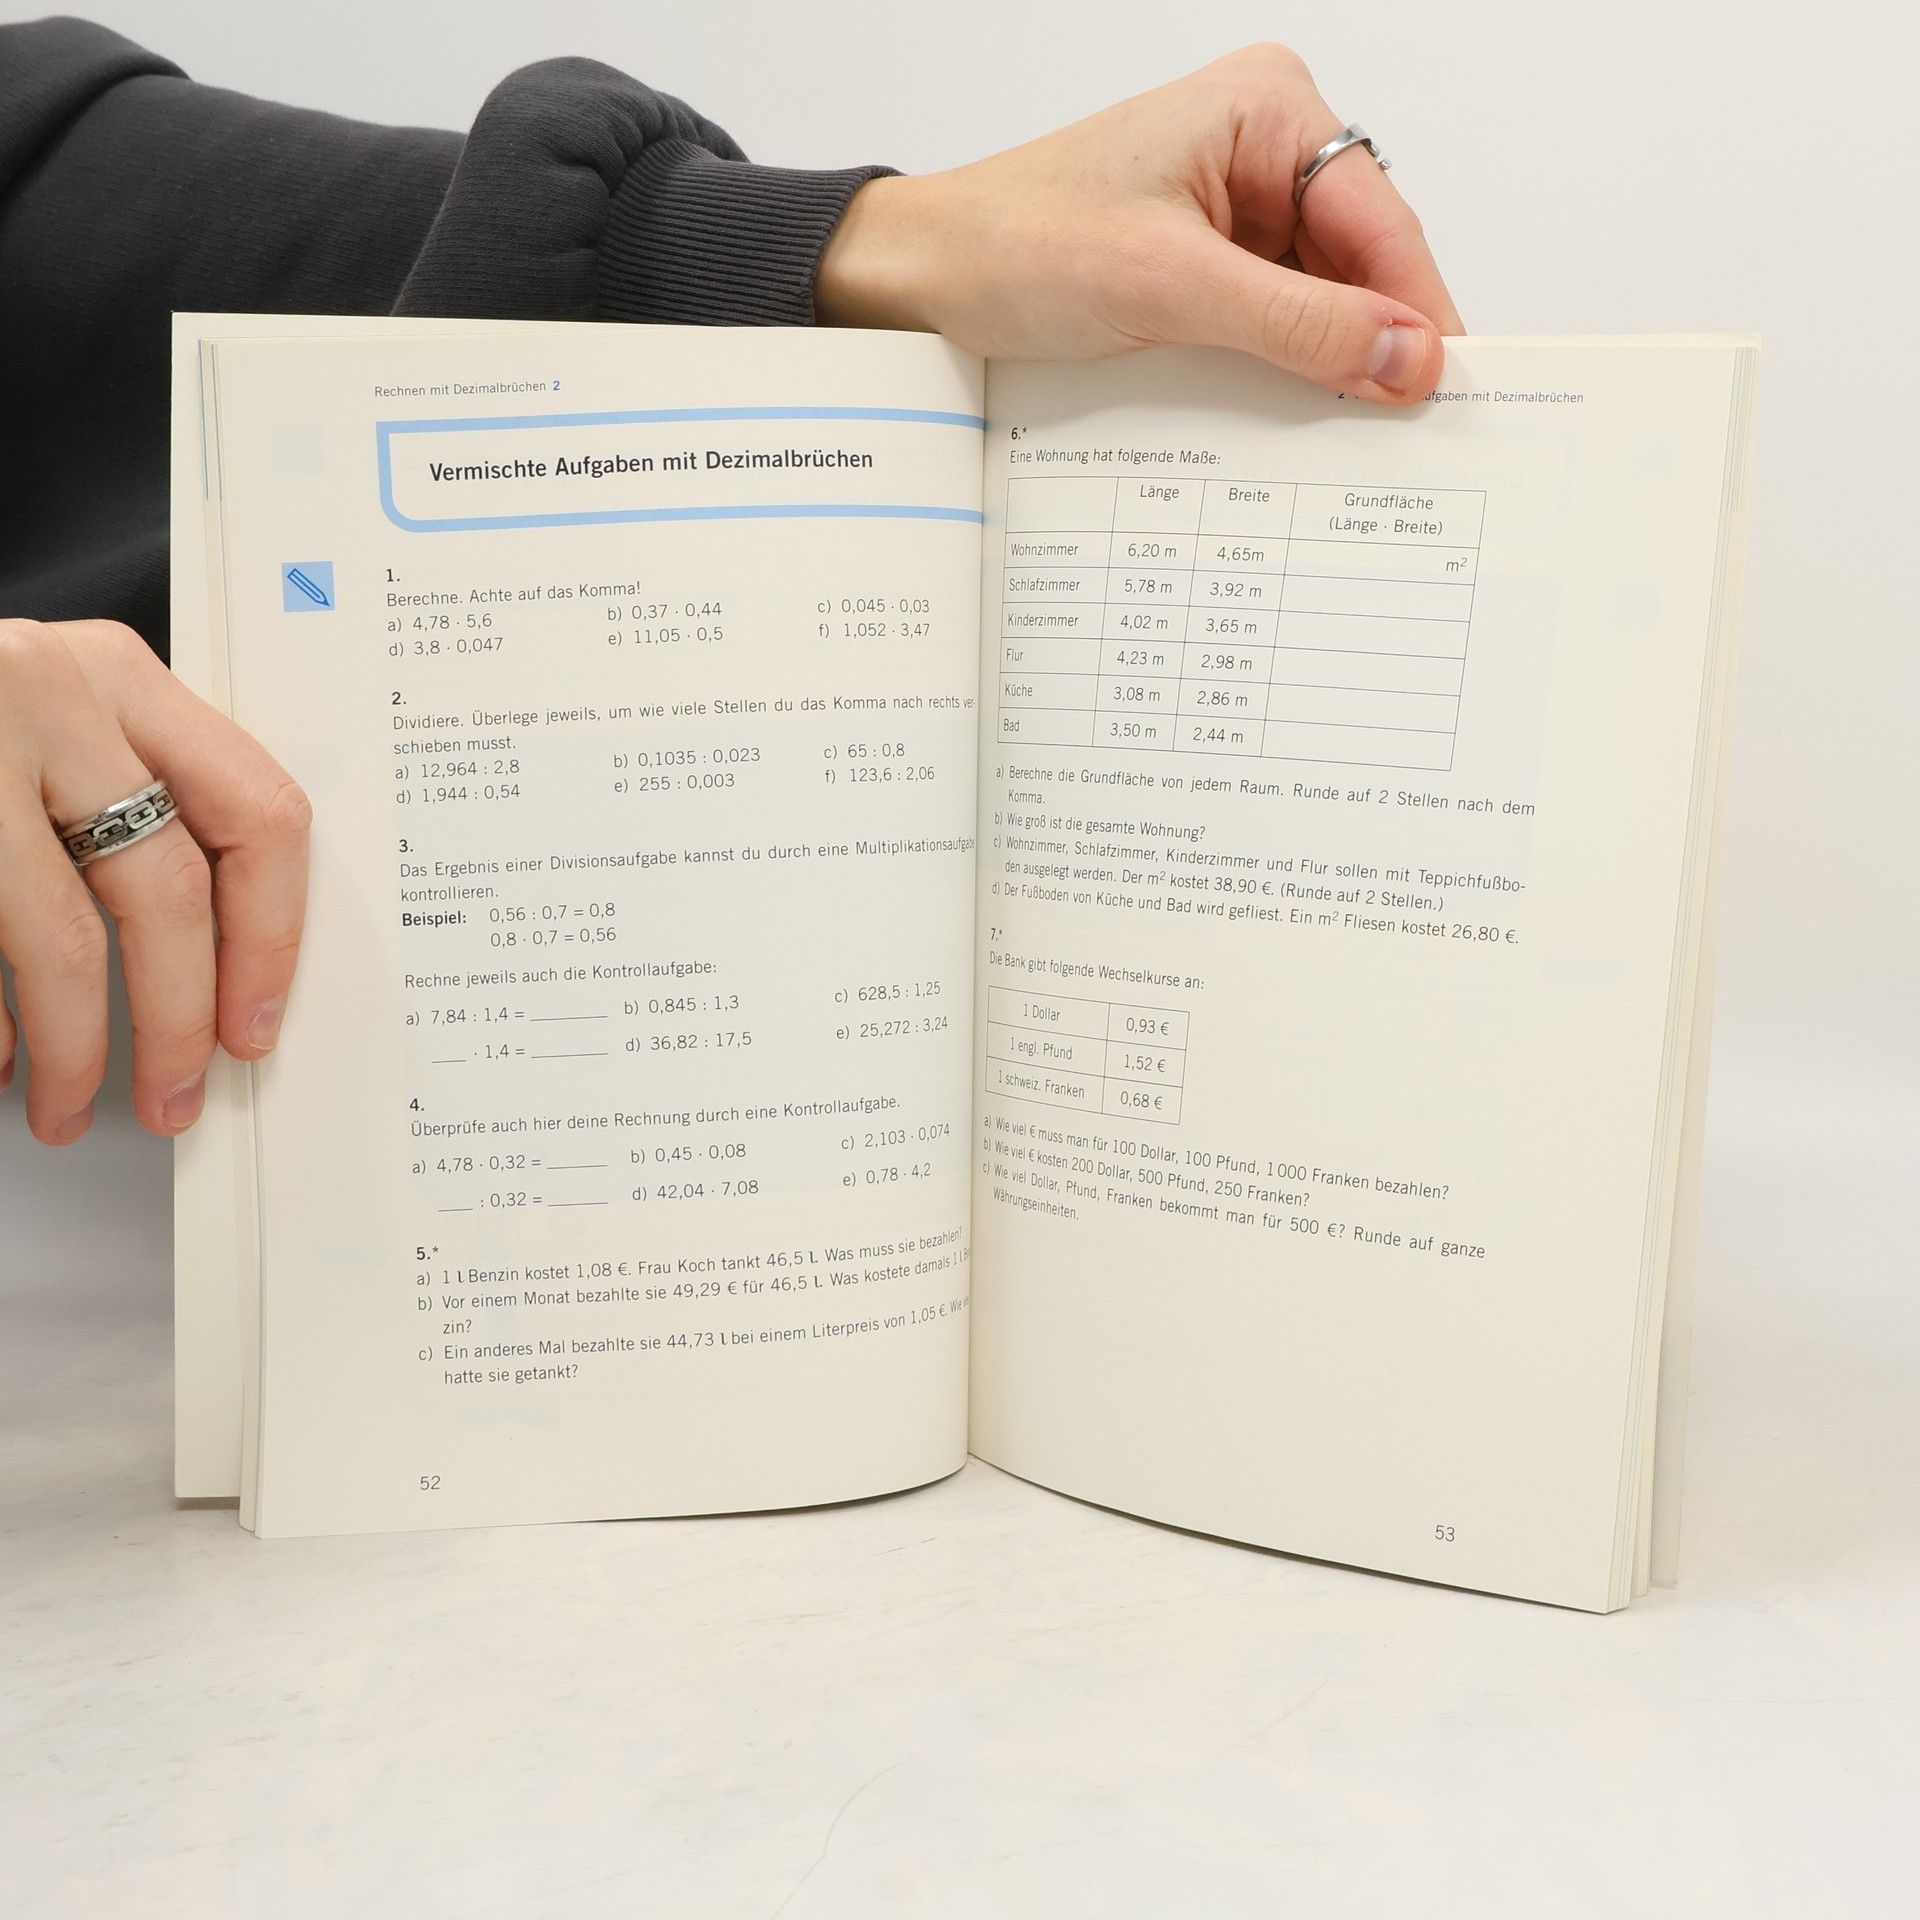 Rechnen mit Dezimalbrüchen 2
Vermischte Aufgaben mit Dezimalbrüchen
1.
Berechne. Achte auf das Komma!
a) 4,78 · 5,6 b) 0,37 · 0,44 c) 0,045 · 0,03
d) 3,8 · 0,047 e) 11,05 · 0,5 f) 1,052 · 3,47
2.
Dividiere. Überlege jeweils, um wie viele Stellen du das Komma nach rechts ver-
schieben musst.
a) 12,964 : 2,8 b) 0,1035 : 0,023 c) 65 : 0,8
d) 1,944 : 0,54 e) 255 : 0,003 f) 123,6 : 2,06
3.
Das Ergebnis einer Divisionsaufgabe kannst du durch eine Multiplikationsaufgabe
kontrollieren.
Beispiel: 0,56 : 0,7 = 0,8
0,8 · 0,7 = 0,56
Rechne jeweils auch die Kontrollaufgabe:
a) 7,84 : 1,4 = ________ b) 0,845 : 1,3 c) 628,5 : 1,25
___ · 1,4 = ________ d) 36,82 : 17,5 e) 25,272 : 3,24
4.
Überprüfe auch hier deine Rechnung durch eine Kontrollaufgabe.
a) 4,78 · 0,32 = ______ b) 0,45 · 0,08 c) 2,103 · 0,074
___ : 0,32 = ______ d) 42,04 · 7,08 e) 0,78 · 4,2
5.*
a) 1 l Benzin kostet 1,08 €. Frau Koch tankt 46,5 l. Was muss sie bezahlen?
b) Vor einem Monat bezahlte sie 49,29 € für 46,5 l. Was kostete damals 1 l
zin?
c) Ein anderes Mal bezahlte sie 44,73 l bei einem Literpreis von 1,05 €. Wie
hatte sie getankt?
52
fgaben mit Dezimalbrüchen
6.*
Eine Wohnung hat folgende Maße:
Länge Breite Grundfläche
(Länge · Breite)
Wohnzimmer 6,20 m 4,65m m²
Schlafzimmer 5,78 m 3,92 m
Kinderzimmer 4,02 m 3,65 m
Flur 4,23 m 2,98 m
Küche 3,08 m 2,86 m
Bad 3,50 m 2,44 m
a) Berechne die Grundfläche von jedem Raum. Runde auf 2 Stellen nach dem
Komma.
b) Wie groß ist die gesamte Wohnung?
c) Wohnzimmer, Schlafzimmer, Kinderzimmer und Flur sollen mit Teppichfußbo-
den ausgelegt werden. Der m² kostet 38,90 €. (Runde auf 2 Stellen.)
d) Der Fußboden von Küche und Bad wird gefliest. Ein m² Fliesen kostet 26,80 €.
7.*
Die Bank gibt folgende Wechselkurse an:
1 Dollar 0,93 €
1 engl. Pfund 1,52 €
1 schweiz. Franken 0,68 €
a) Wie viel € muss man für 100 Dollar, 100 Pfund, 1 000 Franken bezahlen?
b) Wie viel € kosten 200 Dollar, 500 Pfund, 250 Franken?
c) Wie viel Dollar, Pfund, Franken bekommt man für 500 €? Runde auf ganze
Währungseinheiten.
53